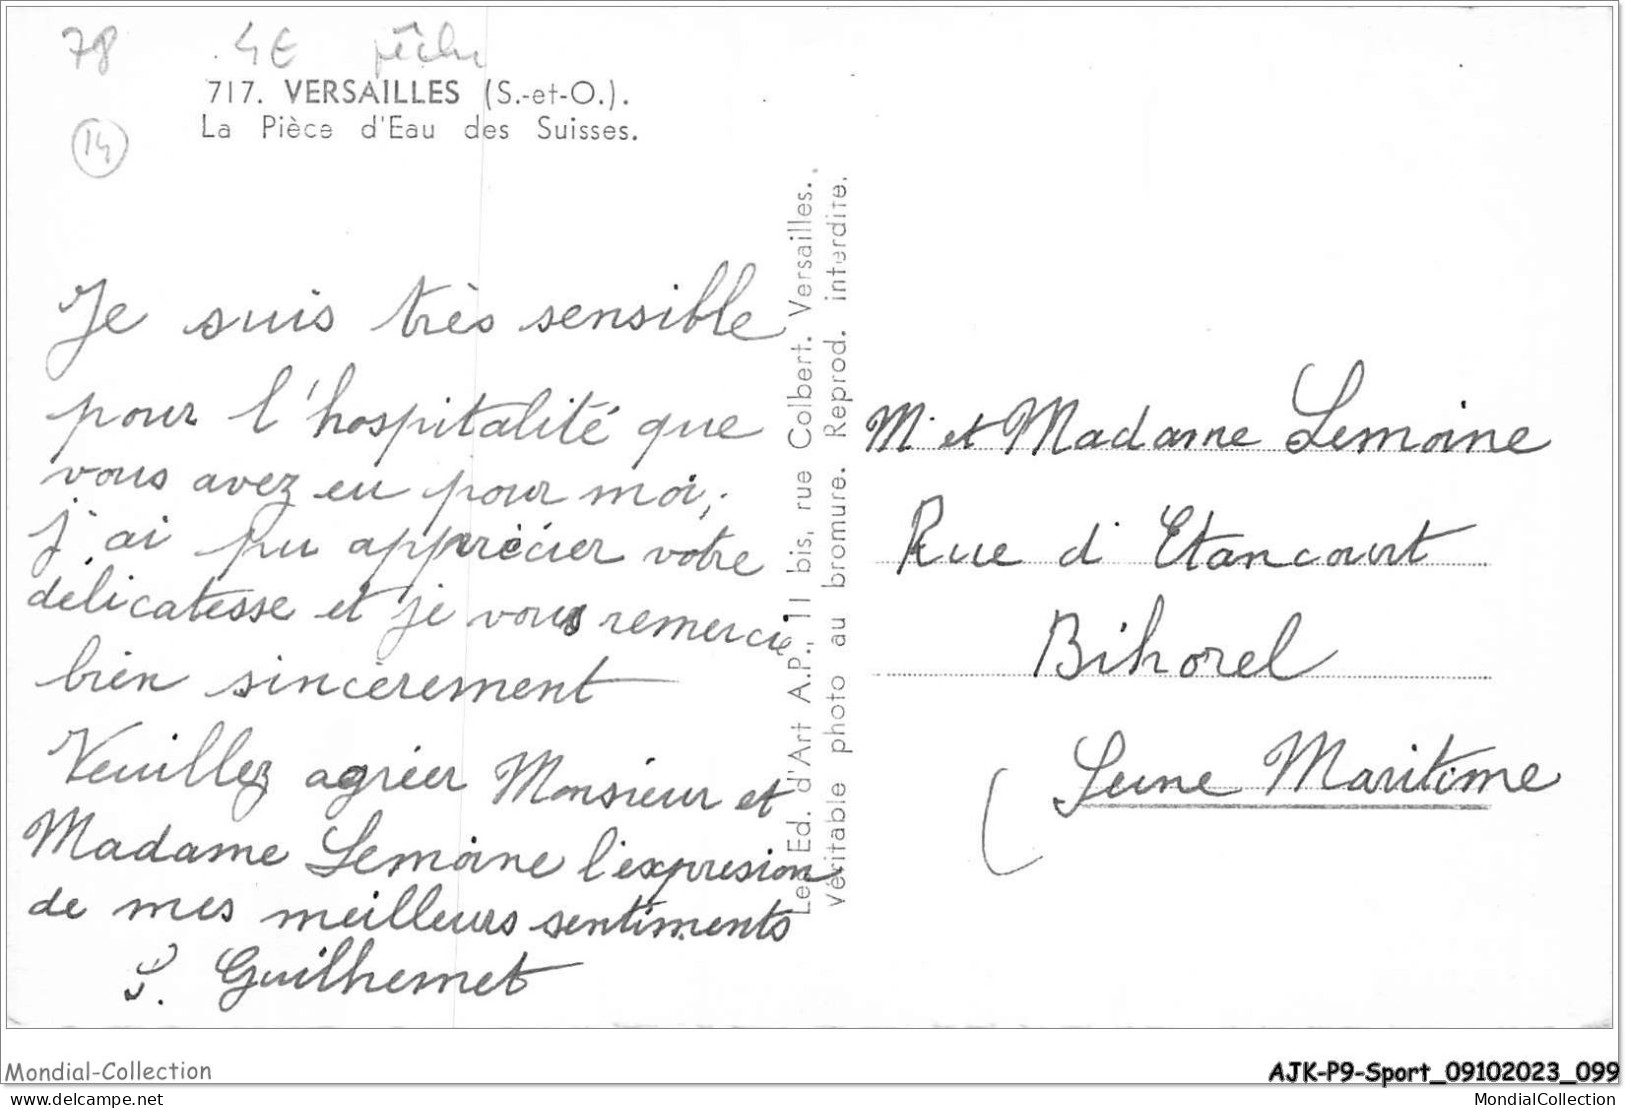 78 4E pêche
717. VERSAILLES (S.-et-O.).
La Pièce d'Eau des Suisses.
14
Je suis très sensible
pour l'hospitalité que
vous avez eu pour moi,
j'ai pu apprécier votre
délicatesse et je vous remercie
bien sincèrement
Veuillez agréer Monsieur et
Madame Lemoine l'expresion
de mes meilleurs sentiments
S. Guilhemet
Les Ed. d'Art A.P., 11 bis, rue Colbert. Versailles.
Véritable photo au bromure. Reprod. interdite.
M. et Madame Lemoine
Rue d'Etancourt
Bihorel
Seine Maritime
Mondial-Collection
AJK-P9-Sport_09102023_099
delcampe.net
MondialCollection